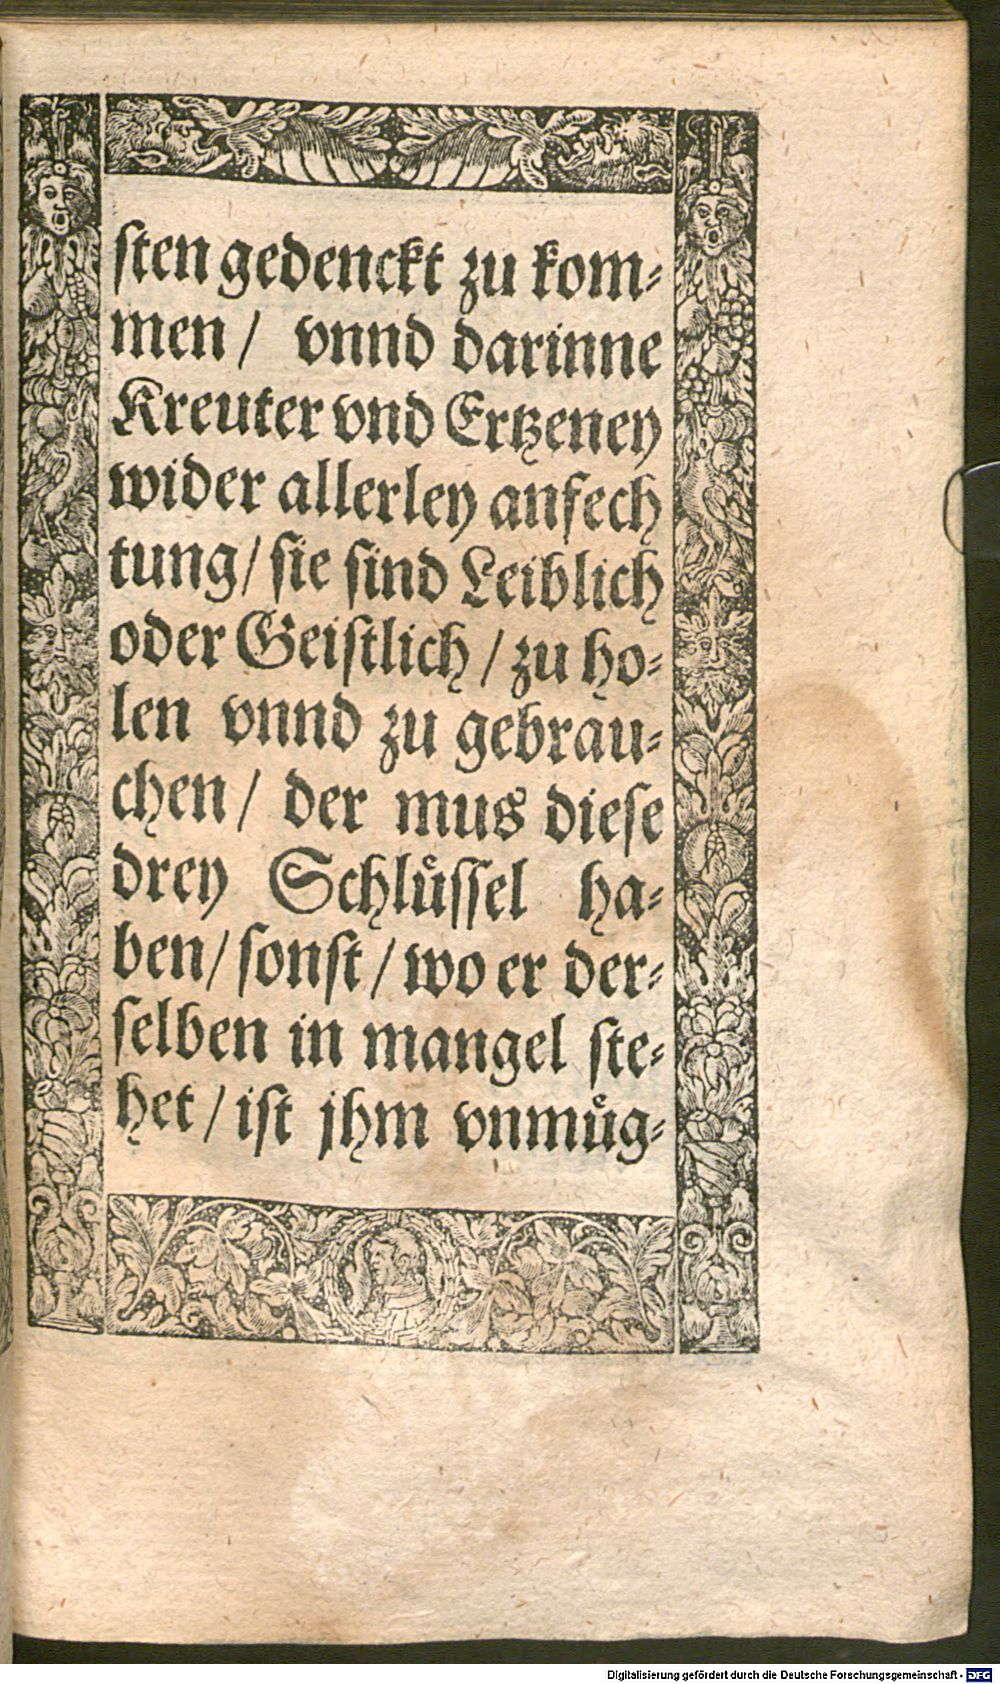 sten gedenckt zu kom⸗
men / vnnd darinne
Kreuter vnd Ertzeney
wider allerley anfech
tung / sie sind Leiblich
oder Geistlich / zu ho⸗
len vnnd zu gebrau⸗
chen / der mus diese
drey Schlüssel ha⸗
ben / sonst / wo er der⸗
selben in mangel ste⸗
het / ist jhm vnmüg⸗
Digitalisierung gefördert durch die Deutsche Forschungsgemeinschaft - DFG